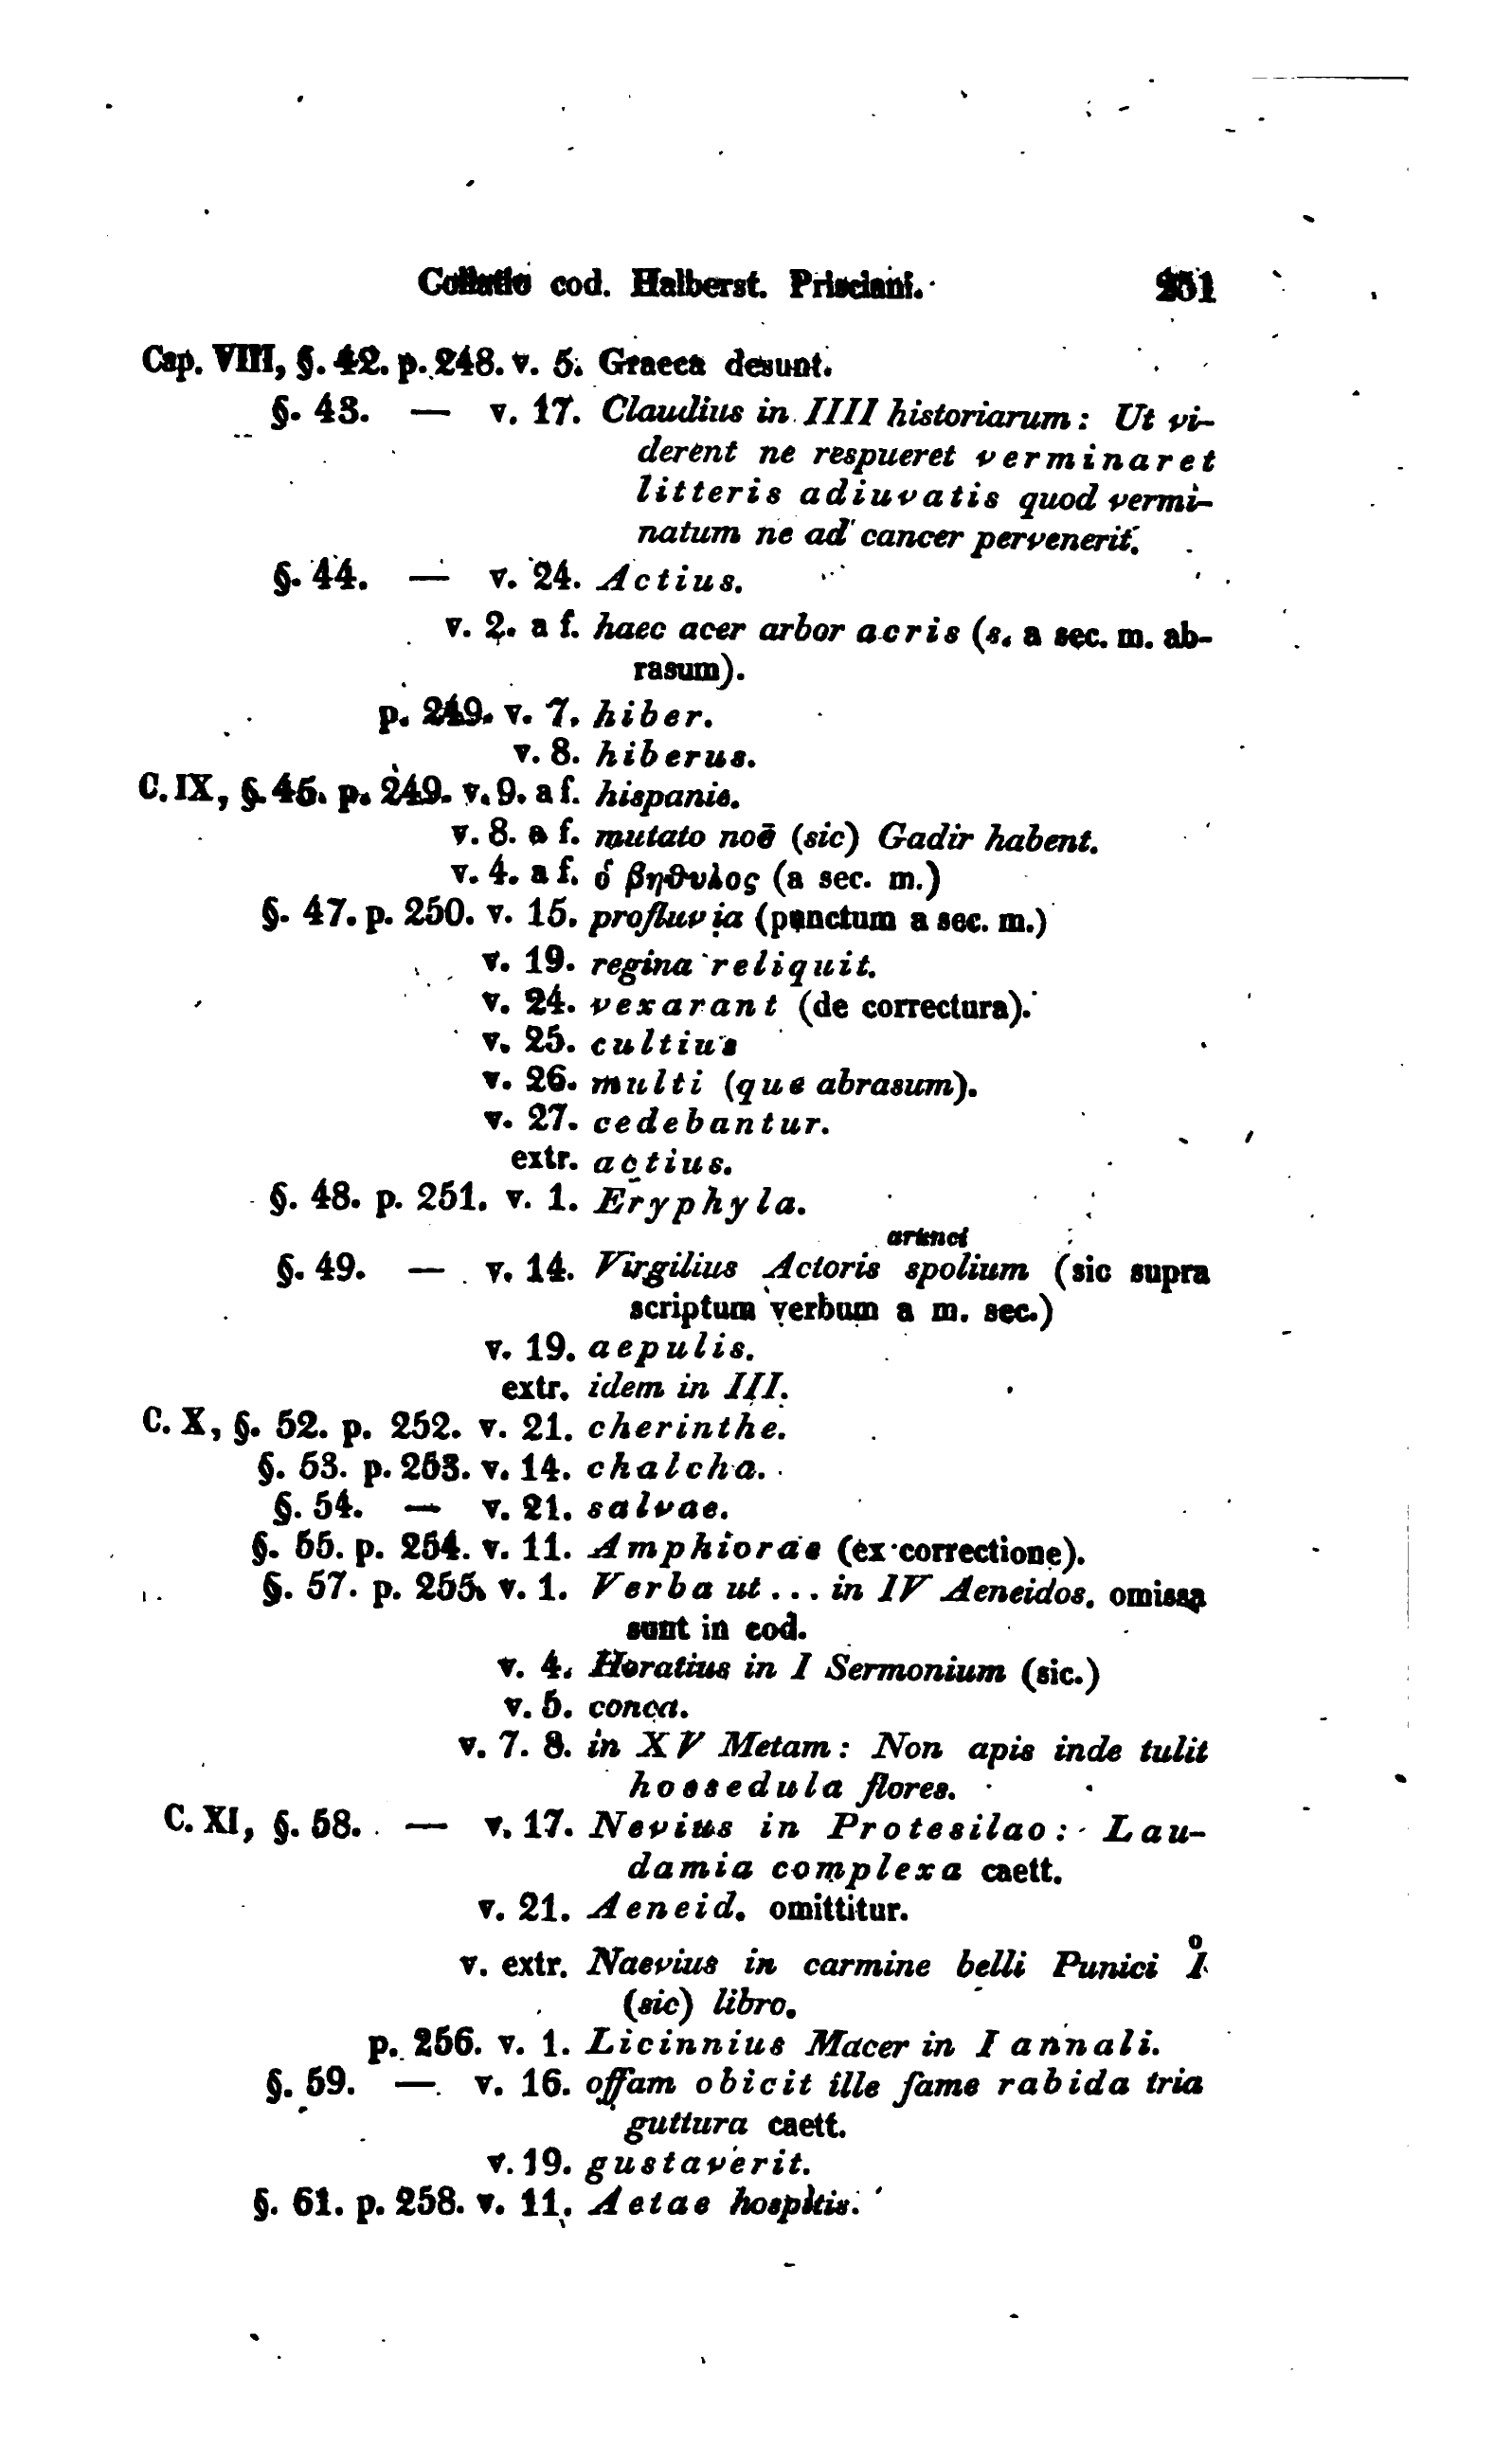 Collatio cod. Halberst. Prisciani. 251
Cap. VIII, §. 42. p. 248. v. 5. Graeca desunt.
§. 43. — v. 17. Claudius in IIII historiarum: Ut vi-
derent ne respueret verminaret
litteris adiuvatis quod vermi-
natum ne ad cancer pervenerit.
§. 44. — v. 24. Actius.
v. 2. a f. haec acer arbor acris (s. a sec. m. ab-
rasum).
p. 249. v. 7. hiber.
v. 8. hiberus.
C. IX, §. 45. p. 249. v. 9. a f. hispanie.
v. 8. a f. mutato noē (sic) Gadir habent.
v. 4. a f. ὁ βηθυλος (a sec. m.)
§. 47. p. 250. v. 15. profluvịa (punctum a sec. m.)
v. 19. regina reliquit.
v. 24. vexarant (de correctura).
v. 25. cultius
v. 26. multi (que abrasum).
v. 27. cedebantur.
extr. actius.
§. 48. p. 251. v. 1. Eryphyla.
arunci
§. 49. — v. 14. Virgilius Actoris spolium (sic supra
scriptum verbum a m. sec.)
v. 19. aepulis.
extr. idem in III.
C. X, §. 52. p. 252. v. 21. cherinthe.
§. 53. p. 253. v. 14. chalcha.
§. 54. — v. 21. salvae.
§. 55. p. 254. v. 11. Amphiorae (ex correctione).
§. 57. p. 255. v. 1. Verba ut ... in IV Aeneidos. omissa
sunt in cod.
v. 4. Horatius in I Sermonium (sic.)
v. 5. conca.
v. 7. 8. in XV Metam: Non apis inde tulit
hossedula flores.
C. XI, §. 58. — v. 17. Nevius in Protesilao: Lau-
damia complexa caett.
v. 21. Aeneid. omittitur.
v. extr. Naevius in carmine belli Punici I̊
(sic) libro.
p. 256. v. 1. Licinnius Macer in I annali.
§. 59. — v. 16. offam obicit ille fame rabida tria
guttura caett.
v. 19. gustaverit.
§. 61. p. 258. v. 11. Aetae hospitis.